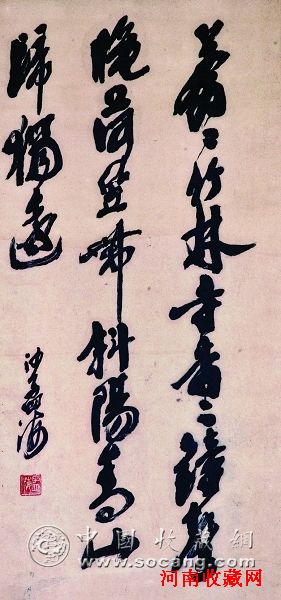 蒼〻竹林寺杳〻鐘聲
晚荷笠帶斜陽青山
歸獨遠
沙孟海
中國收藏網
www.socang.com
河南收藏网